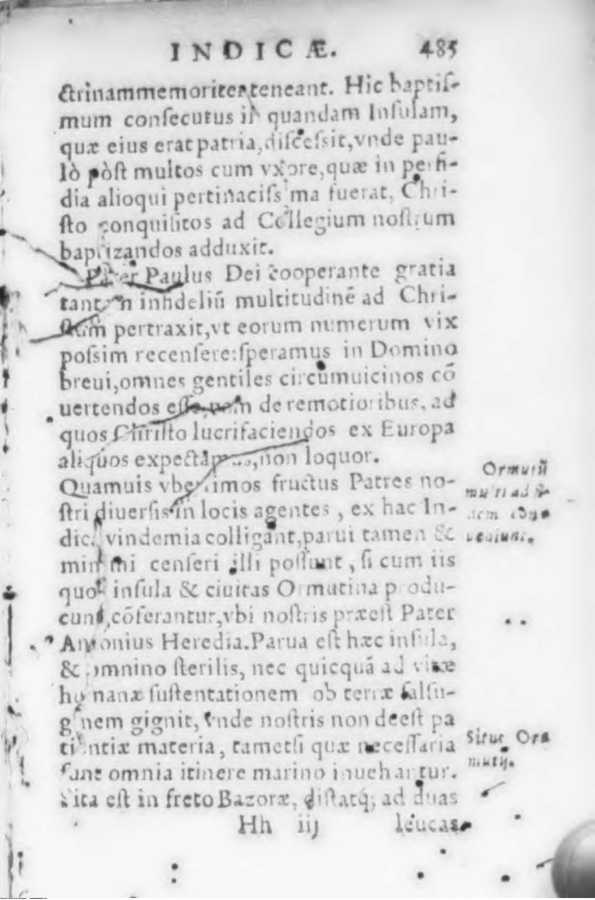 INDICÆ. 485
ctrinam memoriter teneant. Hic baptiſ-
mum conſecutus in quandam Inſulam,
quæ eius erat patria, diſceſsit, vnde pau-
lò pòſt multos cum vxore, quæ in perfi-
dia alioqui pertinaciſsima fuerat, Chri-
ſto conquiſitos ad Collegium noſtrum
baptizandos adduxit.
Pater Paulus Dei cooperante gratia
tantam infideliũ multitudinẽ ad Chri-
ſtum pertraxit, vt eorum numerum vix
poſsim recenſere: ſperamus in Domino
breui, omnes gentiles circumuicinos cõ
uertendos eſſe, nam de remotioribus, ad
quos Chriſto lucrifaciendos ex Europa
aliquos expectamus, non loquor.
Quamuis vberrimos fructus Patres no-
ſtri diuerſis in locis agentes, ex hac In-
dica vindemia colligant, parui tamen &
minimi cenſeri illi poſſunt, ſi cum iis
quos inſula & ciuitas Ormutina produ-
cunt, cõferantur, vbi noſtris præeſt Pater
Antonius Heredia. Parua eſt hæc inſula,
& omnino ſterilis, nec quicquã ad vitæ
humanæ ſuſtentationem ob terræ ſalſu-
ginem gignit, vnde noſtris non deeſt pa
tientiæ materia, tametſi quæ neceſſaria
ſunt omnia itinere marino inuehantur.
Sita eſt in freto Bazoræ, diſtatq; ad duas
Hh iij leucas
Ormutii
multi ad fi-
dem
ueniunt.
Situs Or-
mutij.